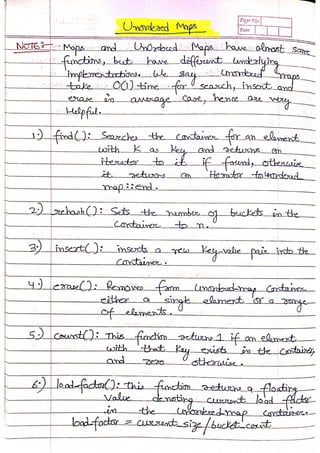 Unordered Maps
Page No.
Date
NOTE:- Maps and UnOrdered Maps have almost same
functions, but have different underlying
Implementations. We say unordered maps
take O(1) time for search, insert and
erase in average case, hence are very
Helpful.
1.) find(): Searches the container for an element
with K as Key and returns an
Iterator to it if found, otherwise
it returns an iterator to unordered
map::end.
2.) rehash(): Sets the number of buckets in the
container to n.
3.) insert(): inserts a new Key-value pair into the
container.
4.) erase(): Removes from unordered-map container
either a single element or a range
of elements.
5.) count(): This function returns 1 if an element
with that Key exists in the container
and zero otherwise.
6.) load-factor(): this function returns a floating
Value denoting current load factor
in the unordered map container.
load-factor = current_size/bucket_count